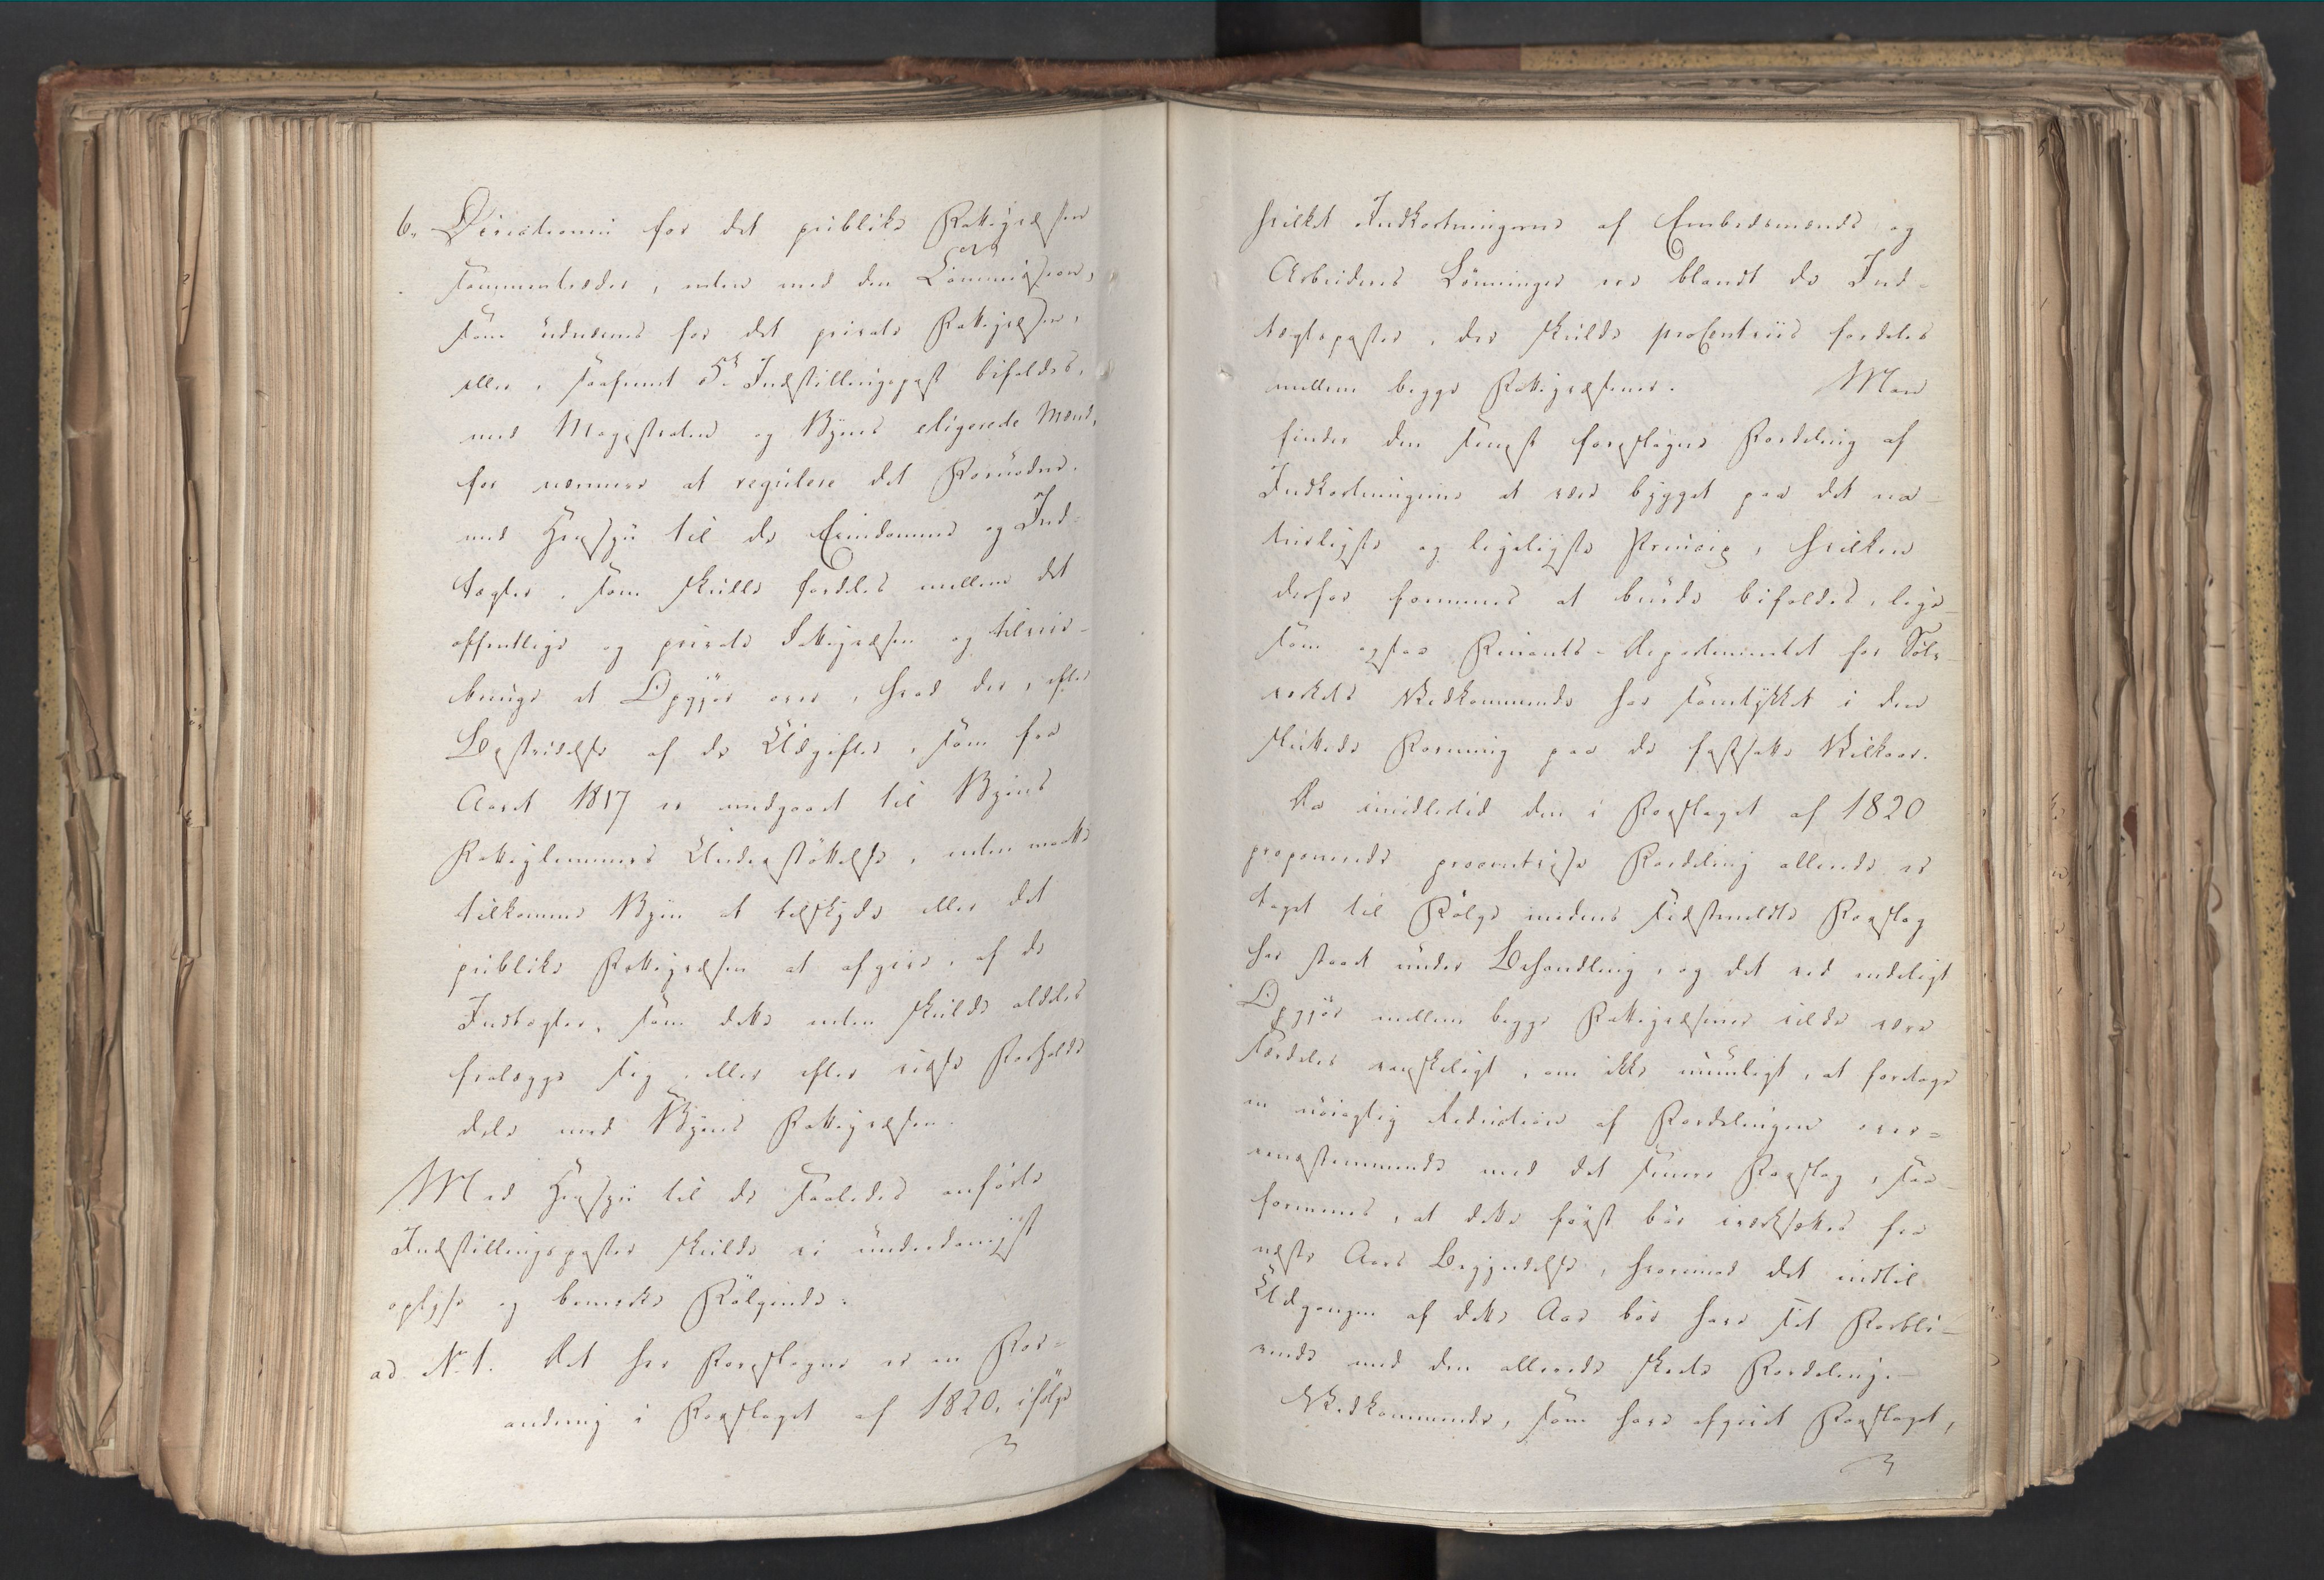 6. Directionen for det publike Fattigvæsen
sammentræder, enten med den Commission,
som udnævnes for det private Fattigvæsen,
eller, saafremt 5te Indstillingspost bifaldes,
med Magistraten og Byens eligerede Mænd,
for nærmere at regulere det Fornødne.
med Hensyn til de Eiendomme og Ind-
tægter, som skulle fordeles mellem det
offentlige og private Fattigvæsen og tilveie-
bringe et Opgjør over, hvad der, efter
Bestridelse af de Udgifter, som fra
Aaret 1817 er medgaaet til Byens
Fattiglemmers Understøttelse, enten maatte
tilkomme Byen at tilskyde eller det
publike Fattigvæsen at afgive, af de
Indtægter, som dette enten skulde aldeles
fralægge sig, eller efter visse Forholde
dele med Byens Fattigvæsen.
Med Hensyn til de saaledes anførte
Indstillingsposter skulde vi underdanigst
oplyse og bemærke Følgende:
ad No 1. Det her Foreslagne er en For-
andring i Forslaget af 1820, ifølge
hvilket Indkortningerne af Embedsmænds og
Arbeideres Lønninger var blandt de Ind-
tægtsposter, der skulde procentviis fordeles
mellem begge Fattigvæsener. Man
finder den senest foreslagne Fordeling af
Indkortningerne at være bygget paa det na-
turligste og ligeligste Princip, hvilken
derfor formenes at burde bifaldes, lige-
som ogsaa Finants-Departementet for Sølv-
værkets Vedkommende har samtykket i den
skeete Forening paa de fastsatte Vilkaar.
Da imidlertid den i Forslaget af 1820
proponerede procentvise Fordeling allerede er
taget til Følge medens sidstmeldte Forslag
har staaet under Behandling, og det ved endeligt
Opgjør mellem begge Fattigvæsener vilde være
særdeles vanskeligt, om ikke umuligt, at foretage
en nøiagtig Reduction af Fordelingen over-
eensstemmende med det senere Forslag, saa
formenes, at dette først bør iværksættes fra
næste Aars Begyndelse, hvorimod det indtil
Udgangen af dette Aar bør have sit Forbli-
vende med den allerede skeete Fordeling.-
Vedkommende, som have afgivet Forslaget,